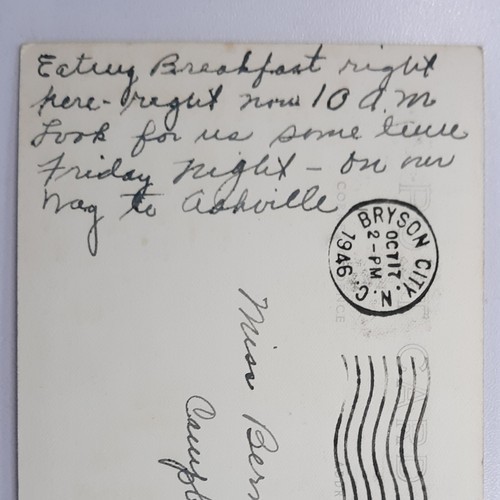 Eating Breakfast right
here - right now 10 A.M
Look for us some time
Friday night - on our
way to Ashville
BRYSON CITY
OCT 17
2 - PM
1946
N. C.
Miss Bern
Campb
CARD